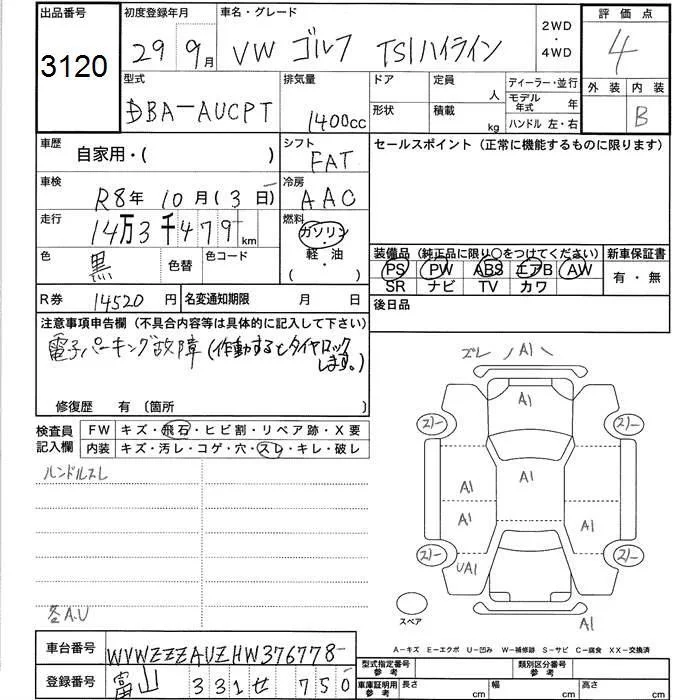 出品番号
3120
初度登録年月
29 9月
車名・グレード
VW ゴルフ TSIハイライン
2WD
・
4WD
評価点
4
外装 内装
B
型式
DBA-AUCPT
排気量
1400cc
ドア
形状
定員
人
積載
kg
ディーラー・並行
モデル年式 年
ハンドル 左・右
車歴
自家用・( )
シフト
FAT
セールスポイント (正常に機能するものに限ります)
車検
R8年 10月(3日)
冷房
AAC
走行
14万3千479km
燃料
ガソリン
・
軽油
( ・ )
色
黒
色替
色コード
装備品 (純正品に限り○をつけてください)
PS PW ABS エアB AW
SR ナビ TV カワ
新車保証書
有・無
R券 14520円
名変通知期限 月 日
後日品
注意事項申告欄 (不具合内容等は具体的に記入して下さい)
電子パーキング故障(作動するとタイヤロック
します。)
修復歴 有 〔箇所 〕
検査員
記入欄
FW キズ・飛石・ヒビ割・リペア跡・X要
内装 キズ・汚レ・コゲ・穴・スレ・キレ・破レ
ハンドルスレ
各A.U
ズレ A1
A1
スリー スリー
A1
A1 A1
A1 A1
UA1
スリー スリー
A1
スペア
A-キズ E-エクボ U-凹み W-補修跡 S-サビ C-腐食 XX-交換済
車台番号
WVWZZZAUZHW376778
登録番号
富山 331 せ 750
型式指定番号
参考
類別区分番号
参考
車庫証明用
参考
長さ cm
幅 cm
高さ cm